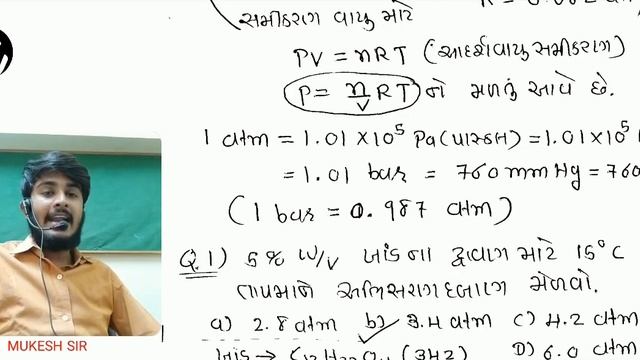 સમીકરણ વાયુ માટે
PV = nRT (આદર્શવાયુ સમીકરણ)
P = n/V RT ને મળતું આવે છે.
1 atm = 1.01 × 10⁵ Pa (પાસ્કલ) = 1.01 × 10⁵
= 1.01 bar = 760 mm Hg = 760
(1 bar = 0.987 atm)
Q.1) 5% W/V ખાંડના દ્રાવણ માટે 15°C
તાપમાને અભિસરણ દબાણ મેળવો.
a) 2.8 atm b) 3.4 atm c) 4.2 atm
ખાંડ → (342) D) 6.0 atm
MUKESH SIR